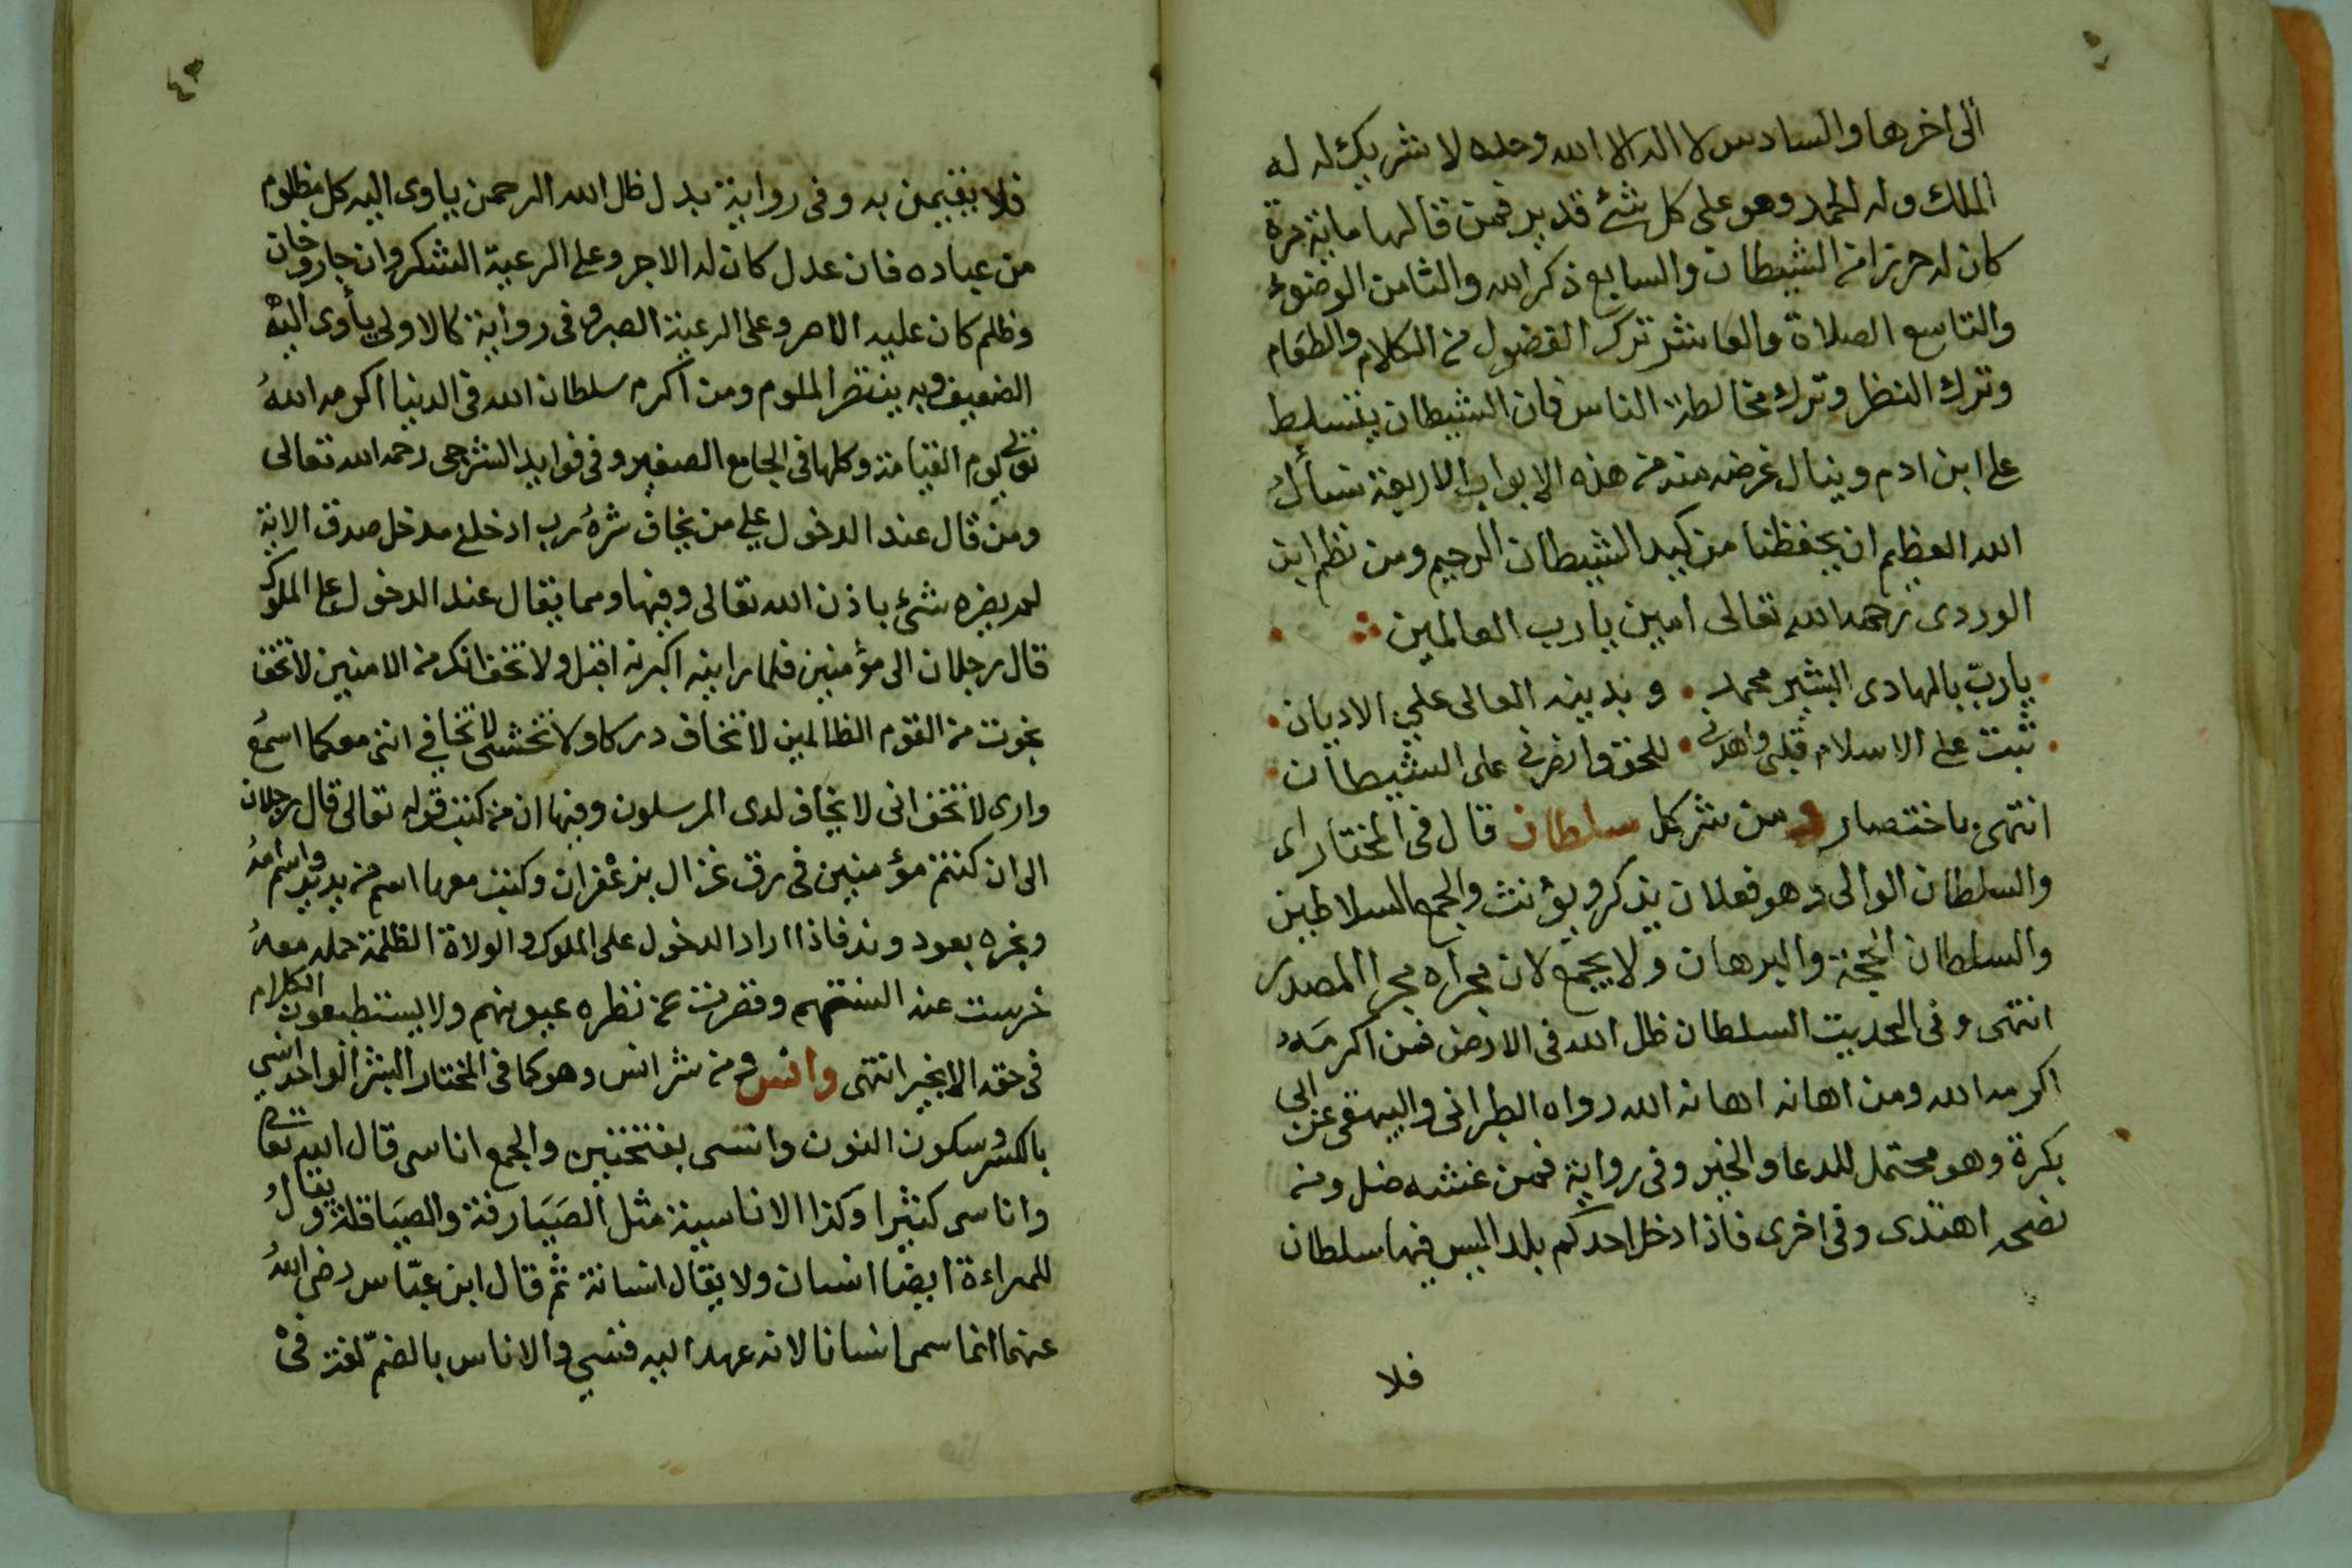 الى اخرها والسادس لا اله الا الله وحده لا شريك له له
الملك وله الحمد وهو على كل شئ قدير فمن قالها ماية مرة
كان له حرزا من الشيطان والسابع ذكر الله والثامن الوضوء
والتاسع الصلاة والعاشر ترك الفضول من الكلام والطعام
وترك النظر وترك مخالطة الناس فان الشيطان يتسلط
على ابن ادم وينال غرضه منه من هذه الابواب الاربعة نسأل
الله العظيم ان يحفظنا من كيد الشيطان الرجيم ومن نظم ابن
الوردى رحمه الله تعالى امين يا رب العالمين
يا ربّ بالهادى البشير محمد • وبدينه العالى على الاديان •
ثبت على الاسلام قلبى واهدنى • للحق وانصرنى على الشيطان •
انتهى باختصار و من شر كل سلطان قال فى المختار اى
والسلطان الوالى وهو فعلان يذكر ويؤنث والجمع السلاطين
والسلطان الحجة والبرهان ولا يجمع لان مجراه مجرا المصدر
انتهى وفى الحديث السلطان ظل الله فى الارض فمن اكرمه
اكرمه الله ومن اهانه اهانه الله رواه الطبرانى والبيهقى عن ابى
بكرة وهو محتمل للدعا والخبر وفى رواية فمن غشه ضل ومن
نصحه اهتدى وفى اخرى فاذا دخل احدكم بلدا ليس فيها سلطان
فلا
٤٣
فلا يقيمن به وفى رواية بدل ظل الله الرحمن ياوى اليه كل مظلوم
من عباده فان عدل كان له الاجر وعلى الرعية الشكر وان جار وخان
وظلم كان عليه الاصر وعلى الرعية الصبر وفى رواية كالاولى يأوى اليه
الضعيف وبه ينتصر الملوم ومن اكرم سلطان الله فى الدنيا اكرمه الله
تعالى يوم القيامة وكلها فى الجامع الصغير وفى فوايد الشرجى رحمه الله تعالى
ومن قال عند الدخول على من يخاف شره رب ادخلنى مدخل صدق الاية
لم يضره شئ باذن الله تعالى وفيها ومما يقال عند الدخول على الملوك
قال رجلان الى مؤمنين فلما راينه اكبرنه اقبل ولا تخف انك من الامنين لا تخف
نجوت من القوم الظالمين لا تخاف دركا ولا تخشى لا تخافى اننى معكما اسمع
وارى لا تخف انى لا يخاف لدى المرسلون وفيها ان من كتب قوله تعالى قال رجلان
الى ان كنتم مؤمنين فى رق غزال بزعفران وكتب معها اسم من يريد واسم امه
وبخره بعود وند فاذا اراد الدخول على الملوك والولاة الظلمة حمله معه
خرست عنه السنتهم وقصرت عن نظره عيونهم ولا يستطيعون الكلام
فى حقه الا بخير انتهى وانس ومن شر انس وهو كما فى المختار البشر الواحد انسى
بالكسر وسكون النون وانسى بفتحتين والجمع اناسى قال الله تعالى
واناسى كثيرا وكذا الاناسية مثل الصَيَارفة والصيَاقلة ويقال
للمراءة ايضا انسان ولا يقال انسانة ثم قال ابن عبّاس رضى الله
عنهما انما سمى انسانا لانه عهد اليه فنسى والاناس بالضمّ لغة فى